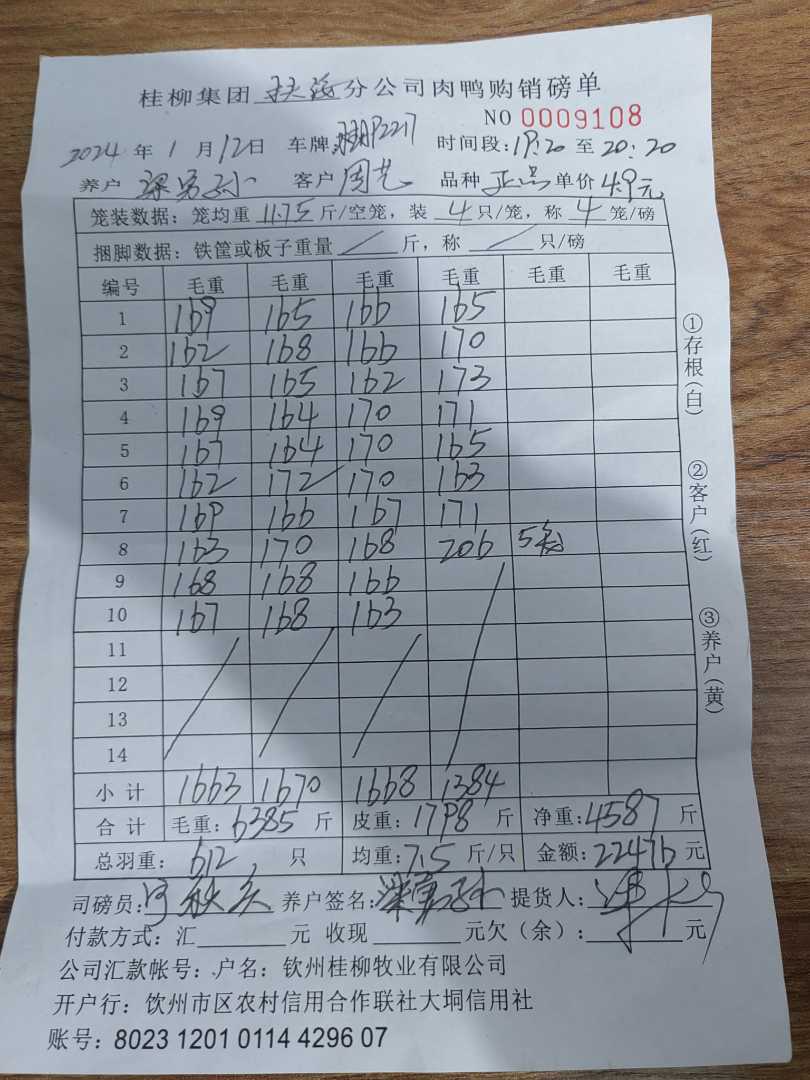 桂柳集团 分公司肉鸭购销磅单
NO 0009108
2024 年 1 月 12 日 车牌: 时间段: 19:20 至 20:20
养户 客户 周 品种 正品 单价 4.9元
笼装数据: 笼均重 11.75 斤/空笼, 装 4 只/笼, 称 4 笼/磅
捆脚数据: 铁筐或板子重量 / 斤, 称 / 只/磅
编号 毛重 毛重 毛重 毛重 毛重 毛重
1 169 165 166 165
2 162 168 166 170
3 167 165 162 173
4 169 164 170 171
5 167 164 170 165
6 162 172 170 163
7 169 166 167 171
8 163 170 168 206 5
9 168 168 166
10 167 168 163
11
12
13
14
小计 1663 1670 1668 1384
合计 毛重: 6385 斤 皮重: 1798 斤 净重: 4587 斤
总羽重: 612 只 均重: 7.5 斤/只 金额: 22476 元
司磅员: 养户签名: 提货人:
付款方式: 汇 元 收现 元欠(余): 元
公司汇款帐号: 户名: 钦州桂柳牧业有限公司
开户行: 饮州市区农村信用合作联社大垌信用社
账号: 8023 1201 0114 4296 07
①存根(白)
②客户(红)
③养户(黄)